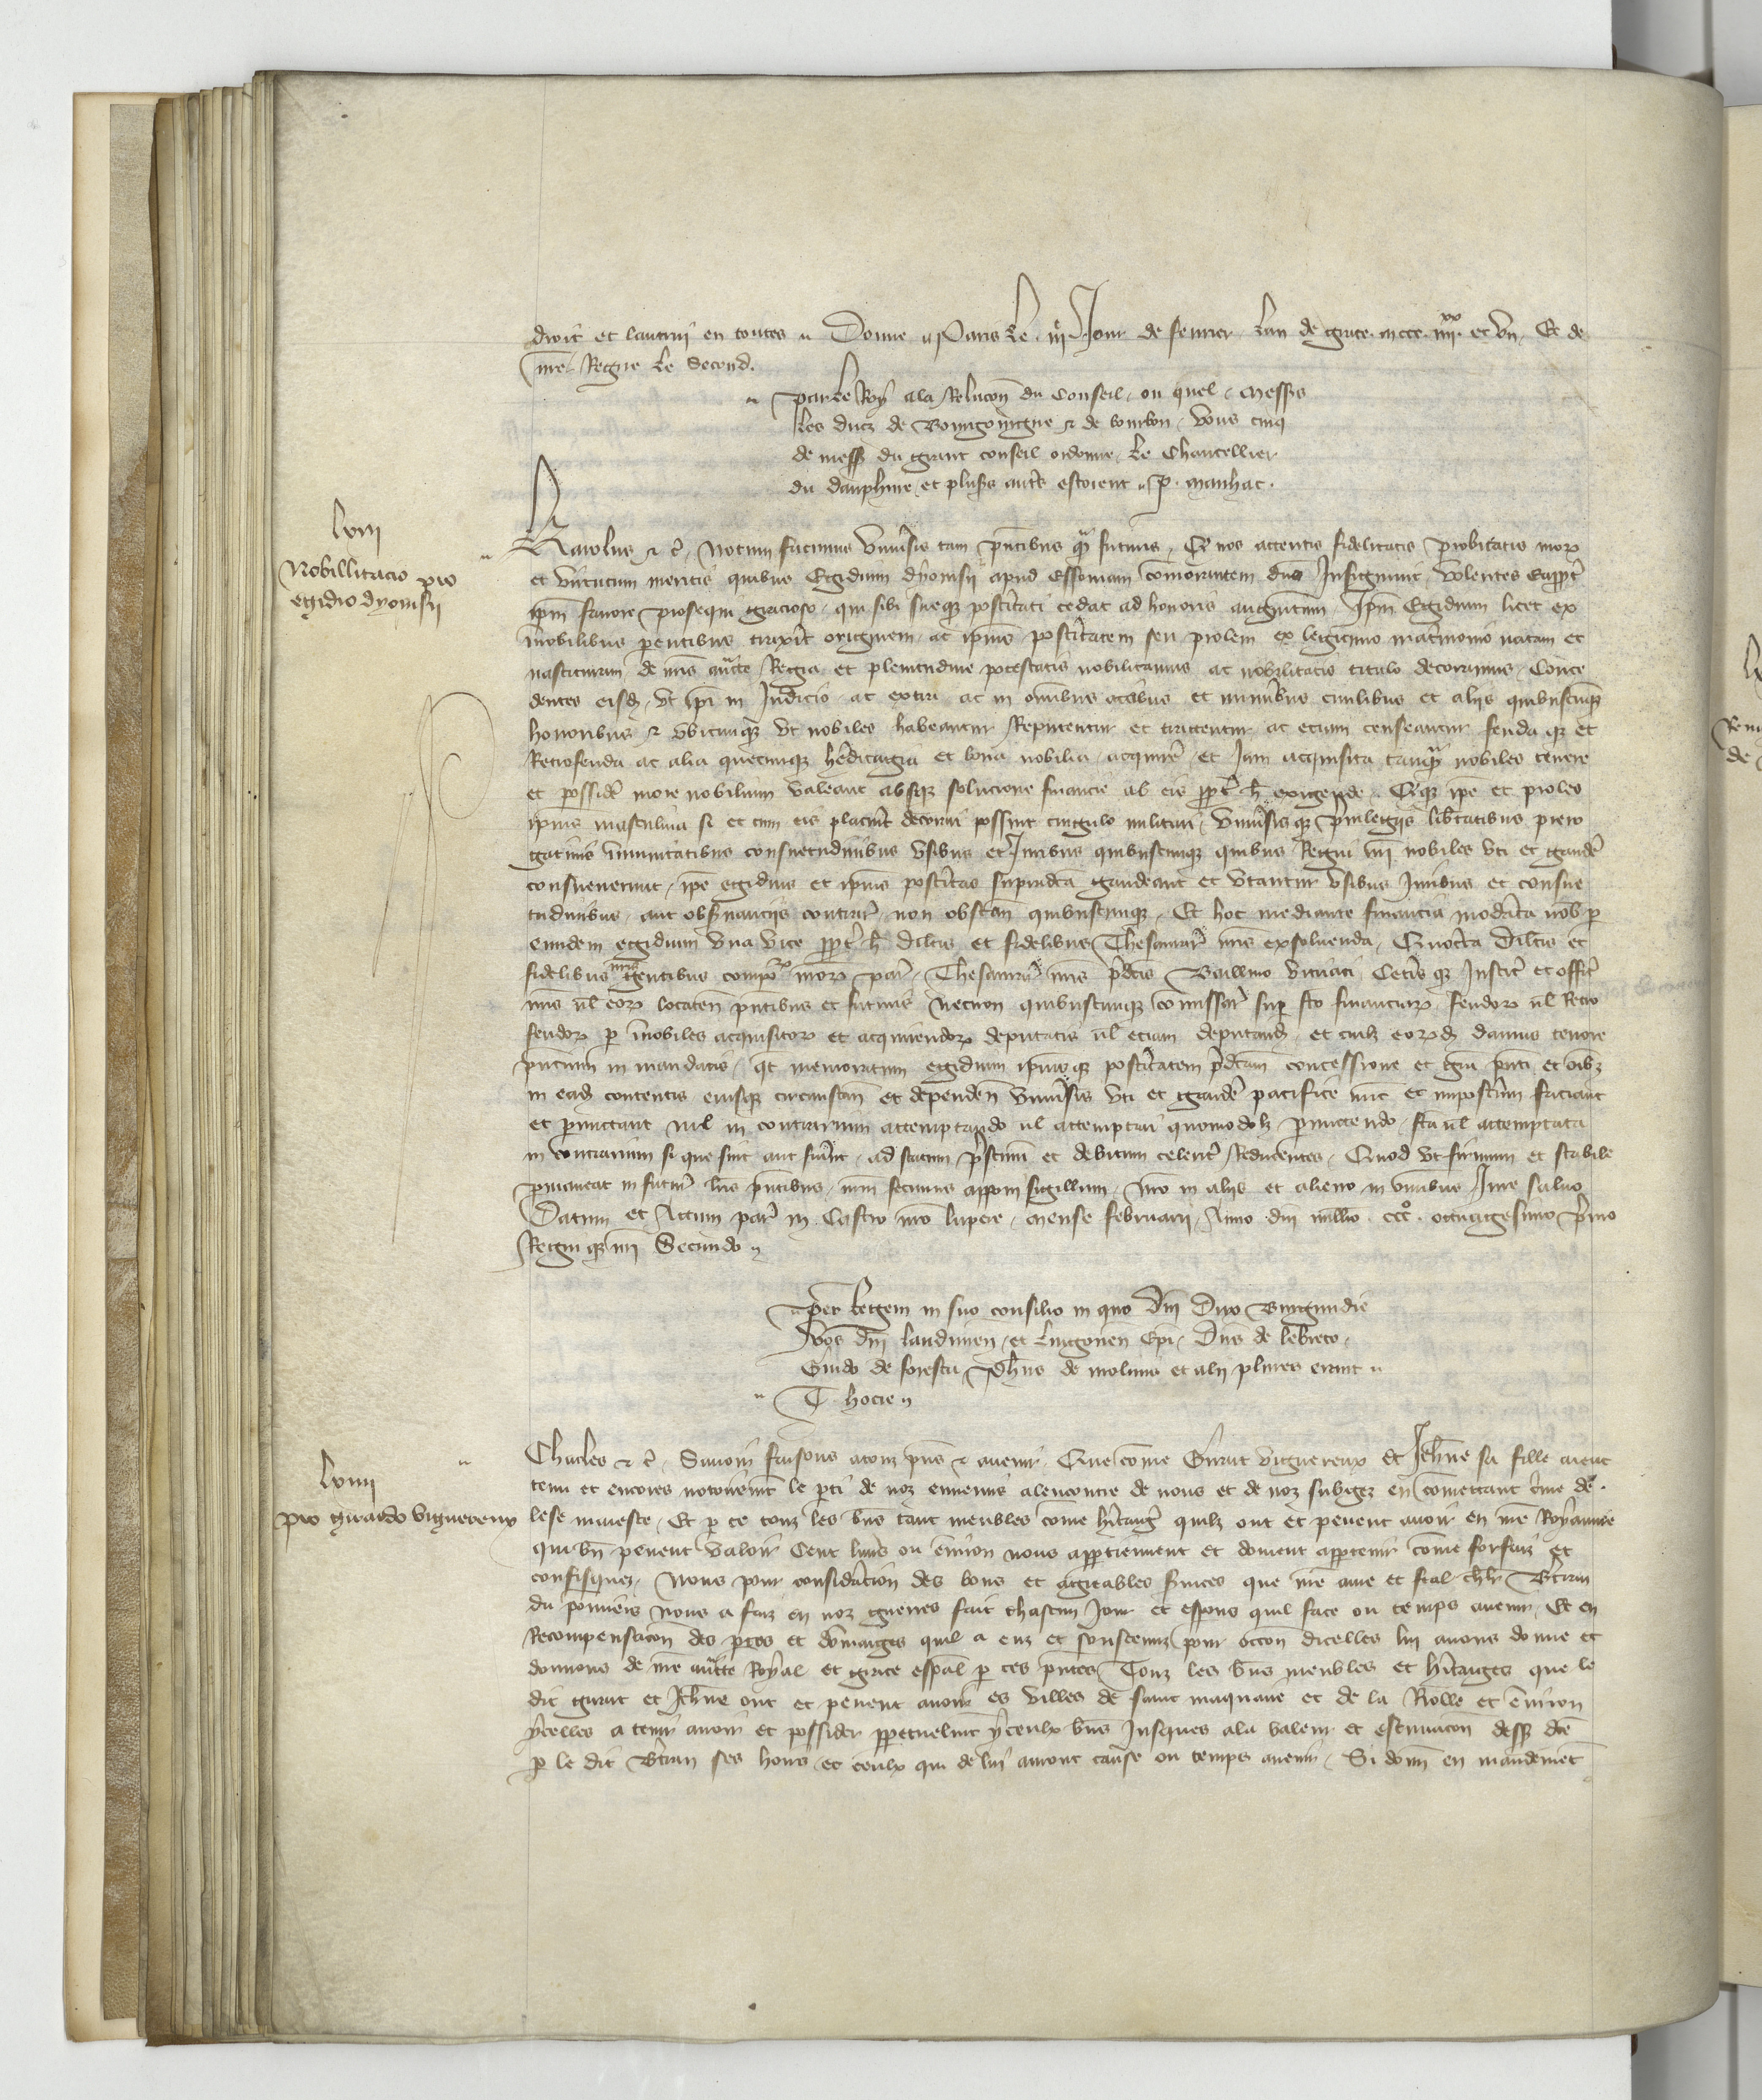 droit et lautrui en toutes Donne a Paris le iiie Jour de feurier Lan de grace mccc iiiixx et vn Et de
nre Regne le second.
par le Roy a la Relacon du Conseil ou quel Messrs
les ducs de Bourgoingne et de bourbon vous cinq
de messrs du grant conseil ordonne le Chancellier
du dauphine et plusrs autrs estoient P. Manhac.
lviii
Nobillitacio pro
egidio dyonisii
Karolus et c Notum facimus vniursis tam pntibus qm futuris Qd nos attentis fidelitatis probitatis mor
et virtutum meritis quibus Egidium dyonisii apud Essoniam comorantem dns Insigniuit volentes eapropt
ipm fauore prosequi gracioso qui sibi sueque posteritati cedat ad honoris augmtum Ipm Egidium licet ex
innobilibus parentibus traxit originem ac ipius postitatem seu prolem ex legitimo matrimonio natam et
nascituram de nris auctte Regia et plenitudine potestatis nobilitamus ac nobilitatis titulo decoramus Conce
dentes eisd vt ipi in Judicio ac extra ac in omibus actibus et muneribus ciuilibus et aliis quibuscumq
honoribus et vbicumque vt nobiles habeantur Reputentur et tractentur ac etiam censeantur feuda que et
Retrofeuda ac alia quecumque heditagia et bona nobilia acquirere et Jam acquisita tamqm nobiles tenere
et possidere more nobilium valeant absque solucione financie ab eis propt h exigende Quodque ipe et proles
ipius masculina si et cum eis placuit decorari possint cingulo militari vniursisque preuilegiis libertatibus prero
gatiuis inmunitatibus consuetudinibus vsibus et Juribus quibuscumque quibus Regni nri nobiles vti et gaudere
consueuerunt ipe egidius et ipius posteritas supradicta gaudeant et vtantur vsibus Juribus et consue
tudinibus aut obseruanciis contrar non obstan quibuscumque Et hoc mediante financia moderata nob per
eundem egidium vna vice propt h dilectis et fidelibus Thesaurar nris exsoluenda Quocirca dilectis et
fidelibus nris gentibus compor nror par Thesaurar nris predictis Bailliuo viturati Ceterisque Justic et offic
nris vl eor locaten pntibus et futuris Necnon quibuscumque comissar super fco financiar feudor vl Retro
feudor per innobiles acquisitor et acquirendor deputatis vl etiam deputand et cuilibet eorumd damus tenore
pntium in mandatis qt memoratum egidium ipiusque posteritatem predictam concessione et gra pnti et oibus
in ead contentis eiusque circumstan et dependen vniursis vti et gaudere pacifice nunc et imposterum faciant
et permittant nil in contrarium attemptando vl attemptari quomodolibet permittendo facta vl attemptata
in contrarium si que sint aut fuerint ad statum pristinum et debitum celeriter Reducentes Quod vt firmum et stabile
permaneat in futur lris pntibus nrm fecimus apponi sigillum nro in aliis et alieno in omibus Jure saluo
Datum et Actum par in Castro nro lupere mense februarii Anno dni millio ccco octuagesimo primo
Regnique nri Secundo
per Regem in suo consilio in quo dni Dux Burgundie
vos dni laudunen et lingonen Epi Dns de lebreto
Guido de foresta Johes de molinis et alii plures erant
T hocie
lviiii
pro giraldo viguereux
Charles et c Sauoir faisons a touz pns et auenir Que come Girart viguereux et Jehne sa fille aient
tenu et encores notoirement le parti de noz ennemis alencontre de nous et de noz subgez en comettant crime de
lese maieste Et par ce touz les bns tant meubles come heritages quilz ont et peuent auoir en nre Royaume
qui bn peuent valoir Cent liures ou enuiron nous appartiennent et doiuent appartenir come forfaiz et
confisquez Nous pour consideracion des bons et aggreables seruices que nre ame et feal chlr Bertran
du nous a faiz en noz guerres fait chascun Jour et esperons quil face ou temps auenir Et en
Recompensacon des pertes et dommages quil a euz et soustenuz pour occon dicelles lui auons donne et
donnons de nre auctte Royal et grace espal par ces pntes Touz les bns meubles et heritages que le
dit girart et Jehne ont et peuent auoir es villes de saint maquaire et de la Riolle et enuiron
ycelles a tenir auoir et possider perpetuelmt yceulx bns Jusques a la valeur et estimacon dessus dce
par le dit Bertran ses hoirs et ceulx qui de lui auront cause ou temps auenir Si donn en mandement